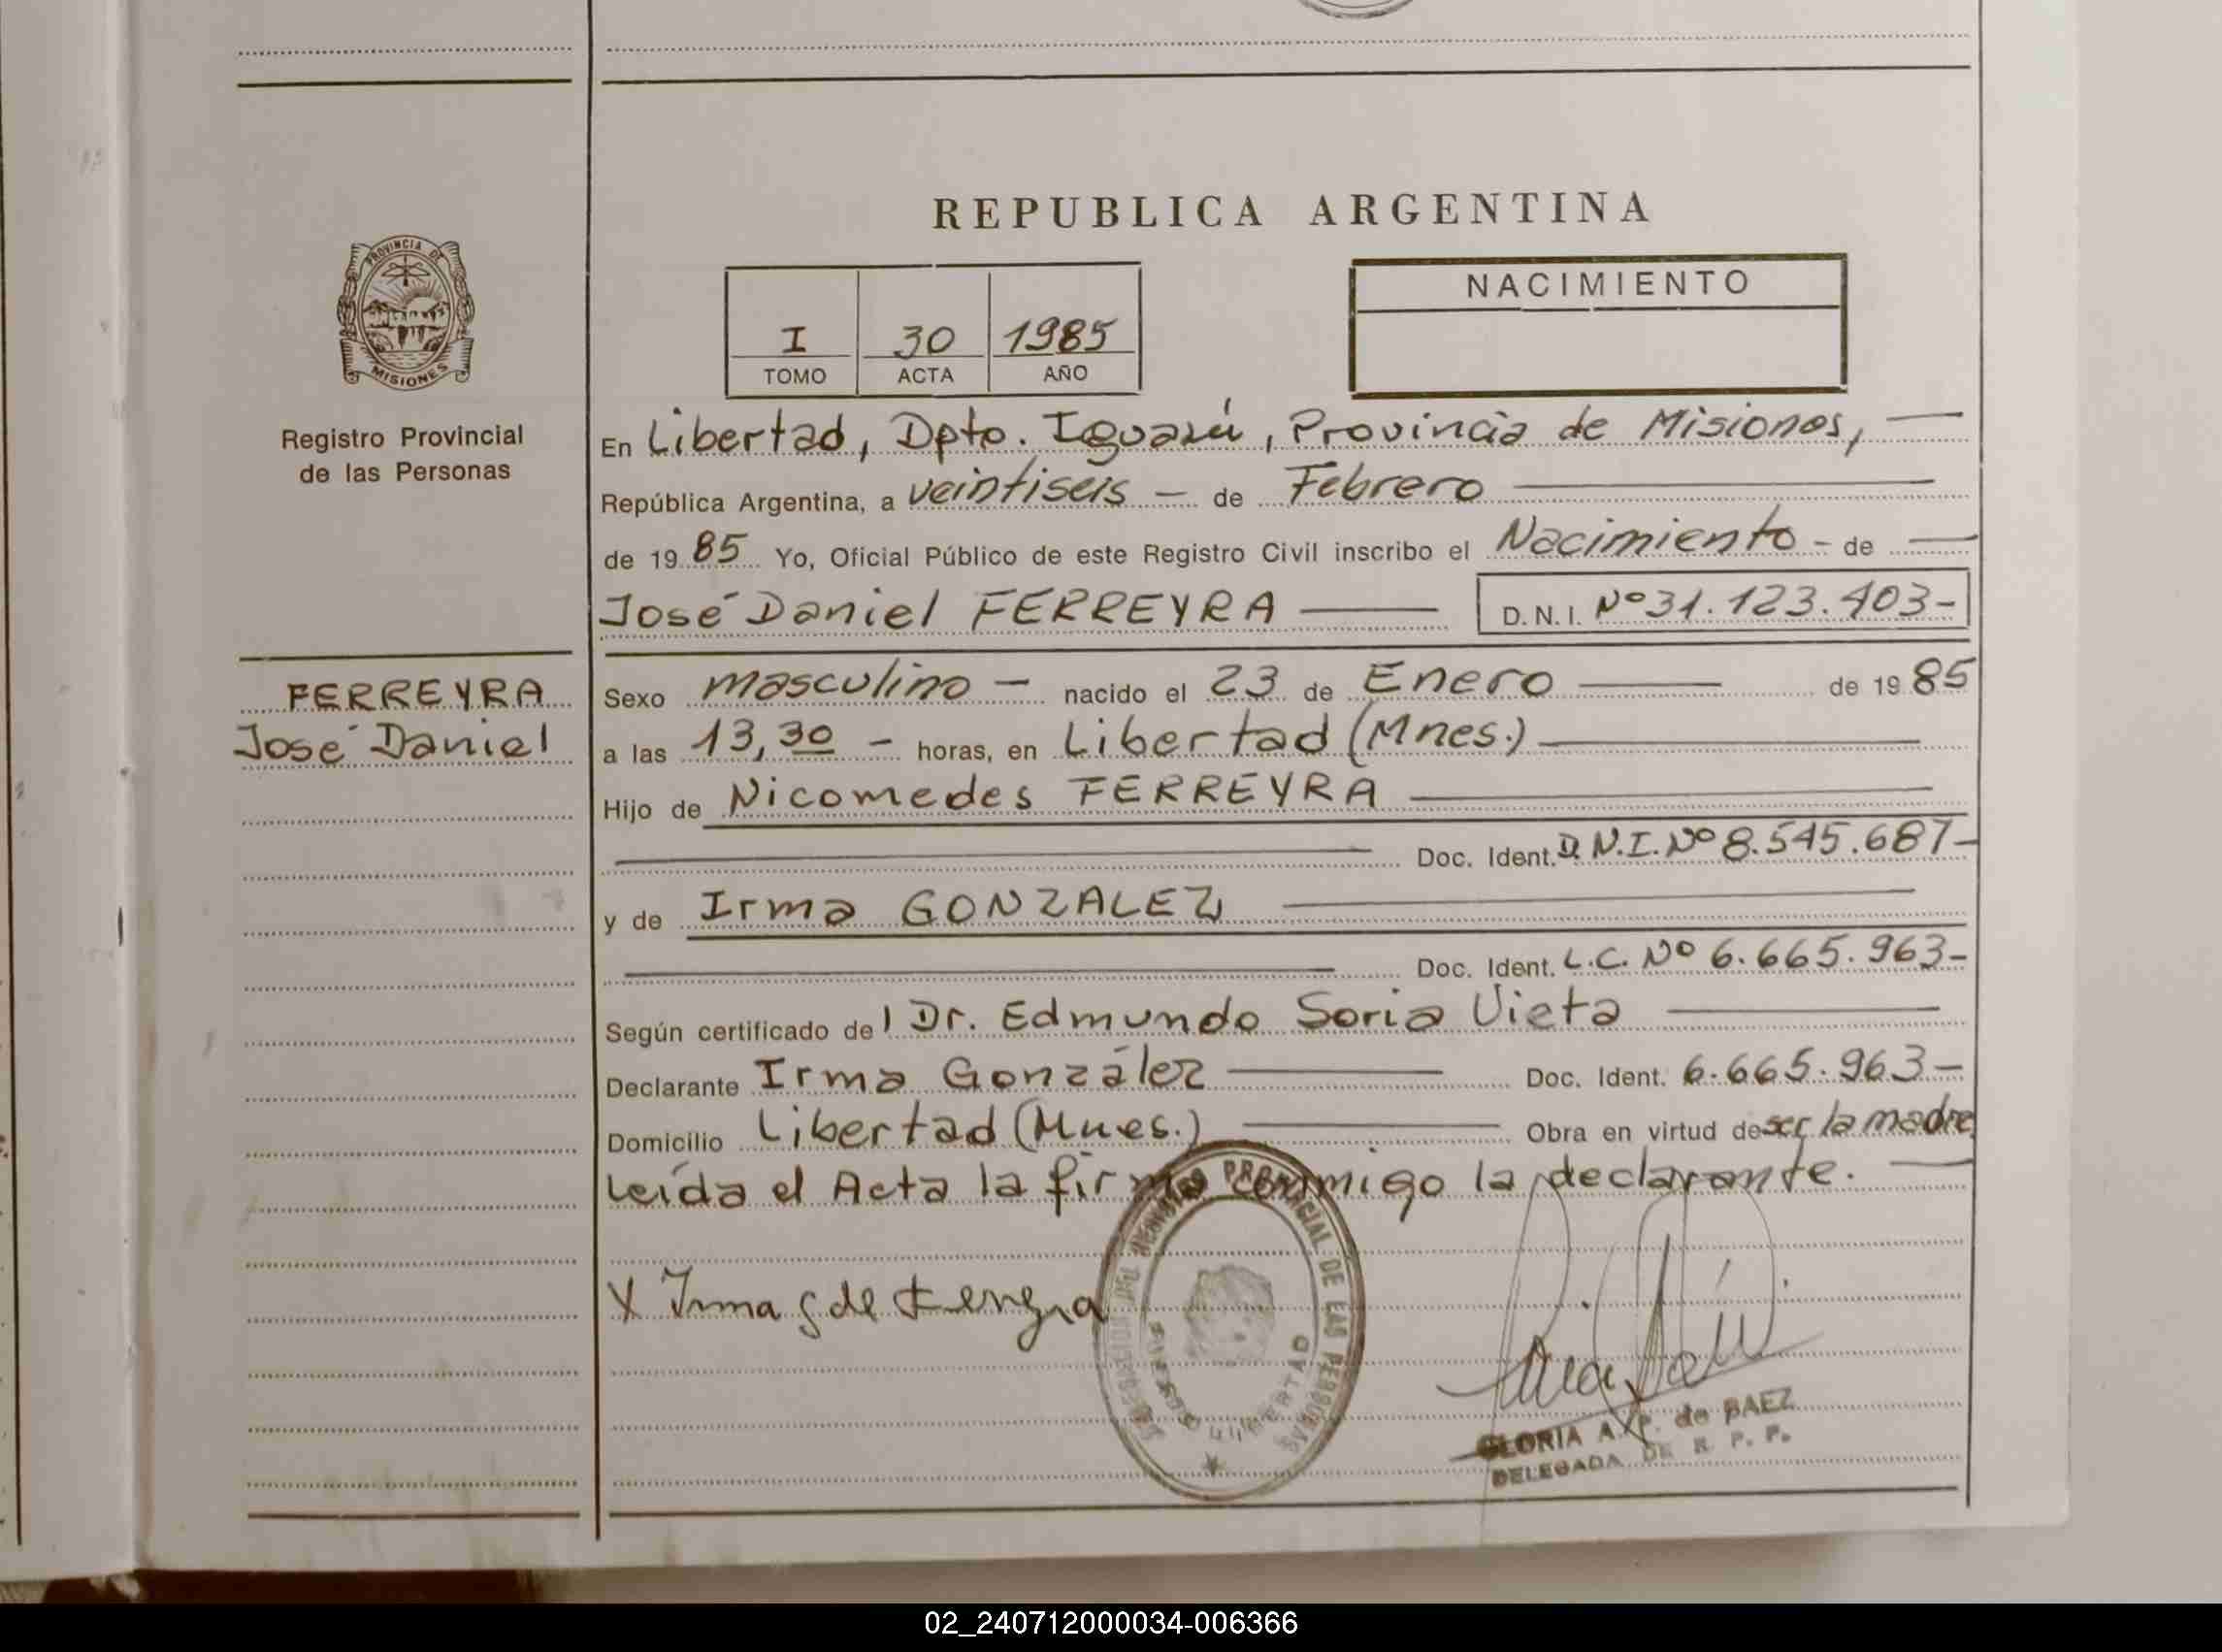 REPUBLICA ARGENTINA
PROVINCIA DE
MISIONES
Registro Provincial
de las Personas
I 30 1985
TOMO ACTA AÑO
NACIMIENTO
En Libertad, Dpto. Iguazú, Provincia de Misiones,
República Argentina, a veintiseis - de Febrero
de 19 85 Yo, Oficial Público de este Registro Civil inscribo el Nacimiento - de
José Daniel FERREYRA D.N.I. Nº 31.123.403-
FERREYRA
José Daniel
Sexo masculino - nacido el 23 de Enero de 19 85
a las 13,30 - horas, en Libertad (Mnes.)
Hijo de Nicomedes FERREYRA
Doc. Ident. D.N.I. Nº 8.545.687-
y de Irma GONZALEZ
Doc. Ident. L.C. Nº 6.665.963-
Según certificado del Dr. Edmundo Soria Vieta
Declarante Irma González Doc. Ident. 6.665.963-
Domicilio Libertad (Mnes.) Obra en virtud de ser la madre
Leída el Acta la firma conmigo la declarante.
X Irma G de
REGISTRO PROVINCIAL DE LAS PERSONAS
LIBERTAD
GLORIA A. P. de BAEZ
DELEGADA DE R. P. P.
02_240712000034-006366